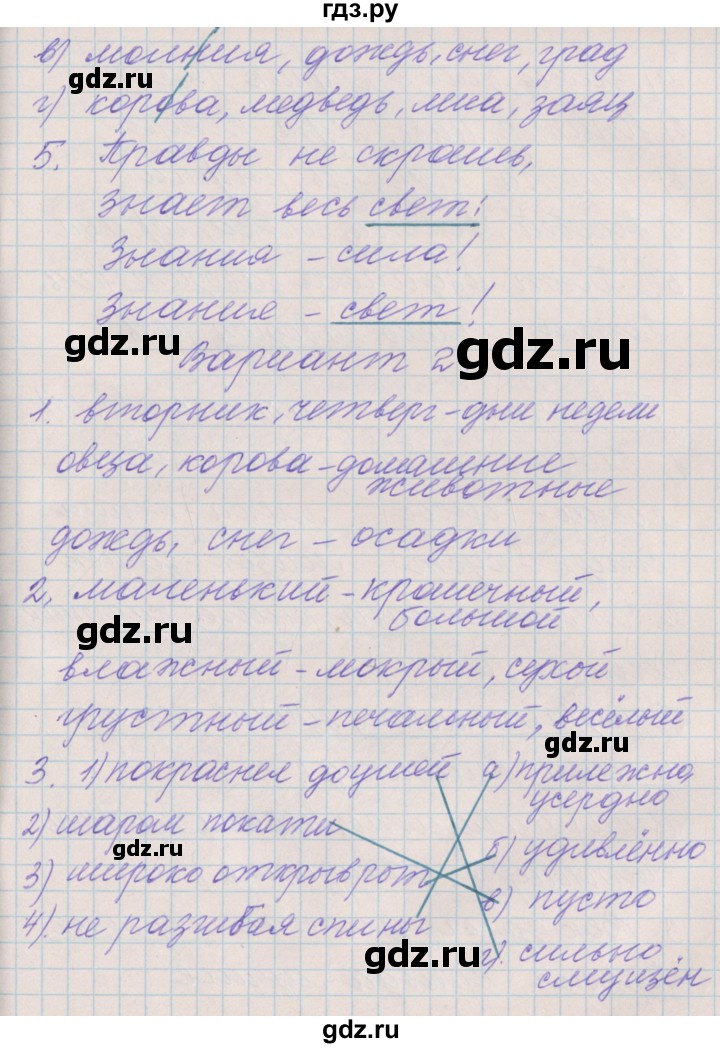 гдз.ру
в) молния, дождь, снег, град
gdz.ru
г) корова, медведь, лиса, заяц
5. Правды не скроешь,
знает весь свет!
Знания - сила!
Знание - свет!
gdz.ru
Вариант 2
gdz.ru
1. вторник, четверг - дни недели
овца, корова - домашние
животные
дождь, снег - осадки
2, маленький - крошечный,
большой
gdz.ru
влажный - мокрый, сухой
грустный - печальный, весёлый
gdz.ru
3. 1) покраснел до ушей а) прилежно,
усердно
2) шаром покати
gdz.ru
б) удивлённо
3) широко открыв рот
в) пусто
4). не разгибая спины
г). сильно
смущён
gdz.ru
gdz.ru